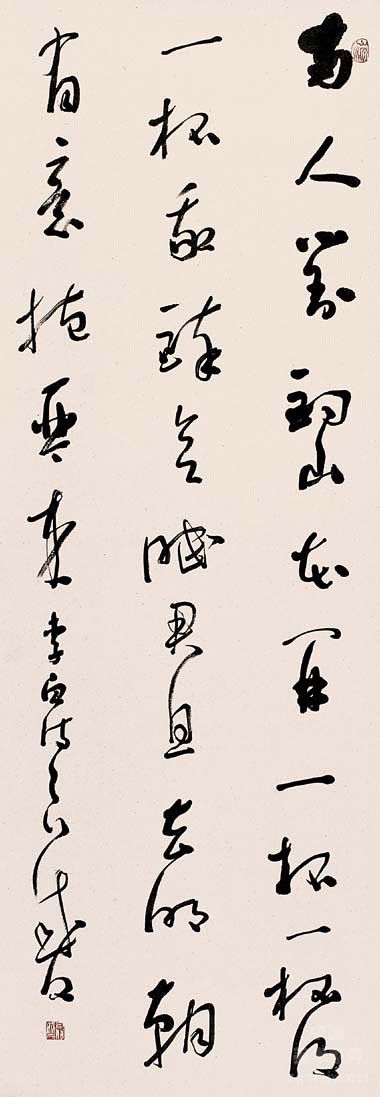 两人對酌山花開一杯一杯復
一杯我醉欲眠君且去明朝
有意抱琴来李白诗